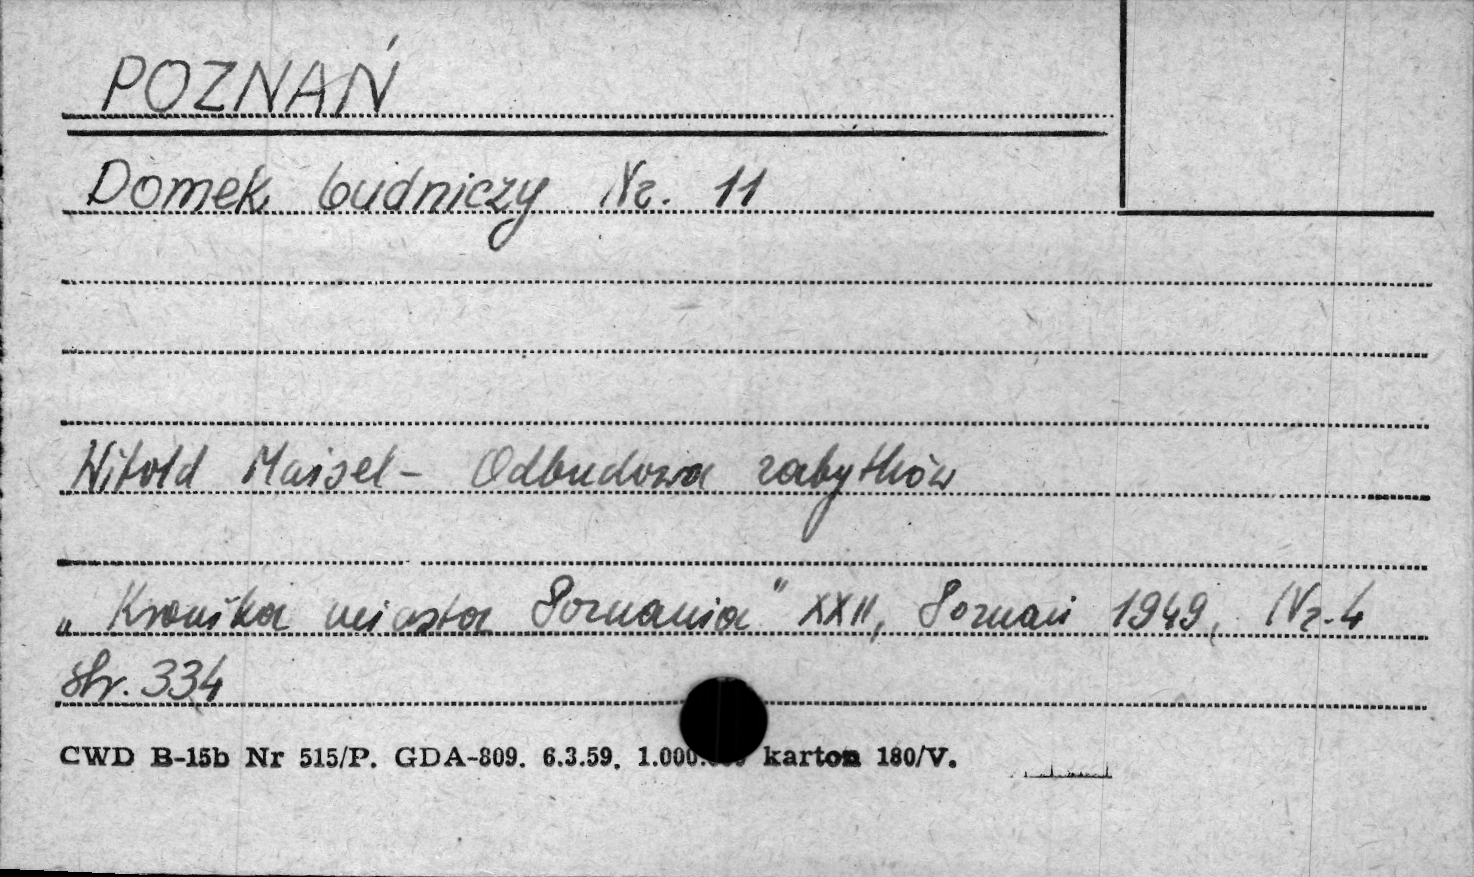 POZNAŃ
Domek budniczy Nr. 11
Witold Maisel - Odbudowa zabytków
„Kronika miasta Poznania" XXII, Poznań 1949, Nr. 4
str. 334
CWD B-15b Nr 515/P. GDA-809. 6.3.59. 1.000. karton 180/V.